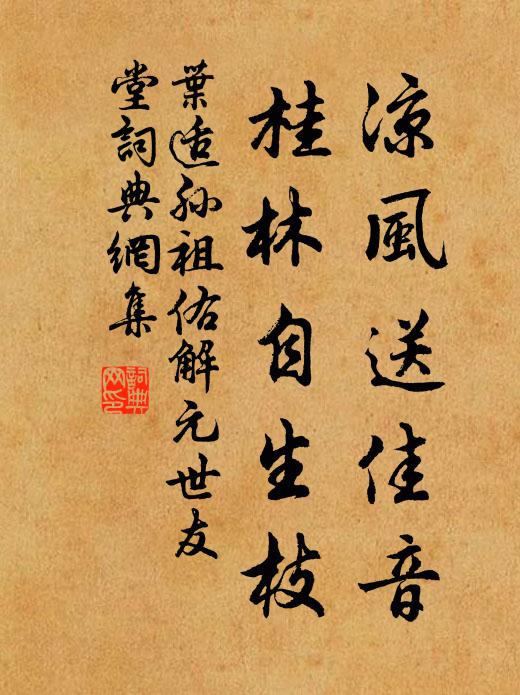 涼風送佳音
桂林自生枝
葉适孙祖佑解元世友
堂詞典網集
詞典
网印